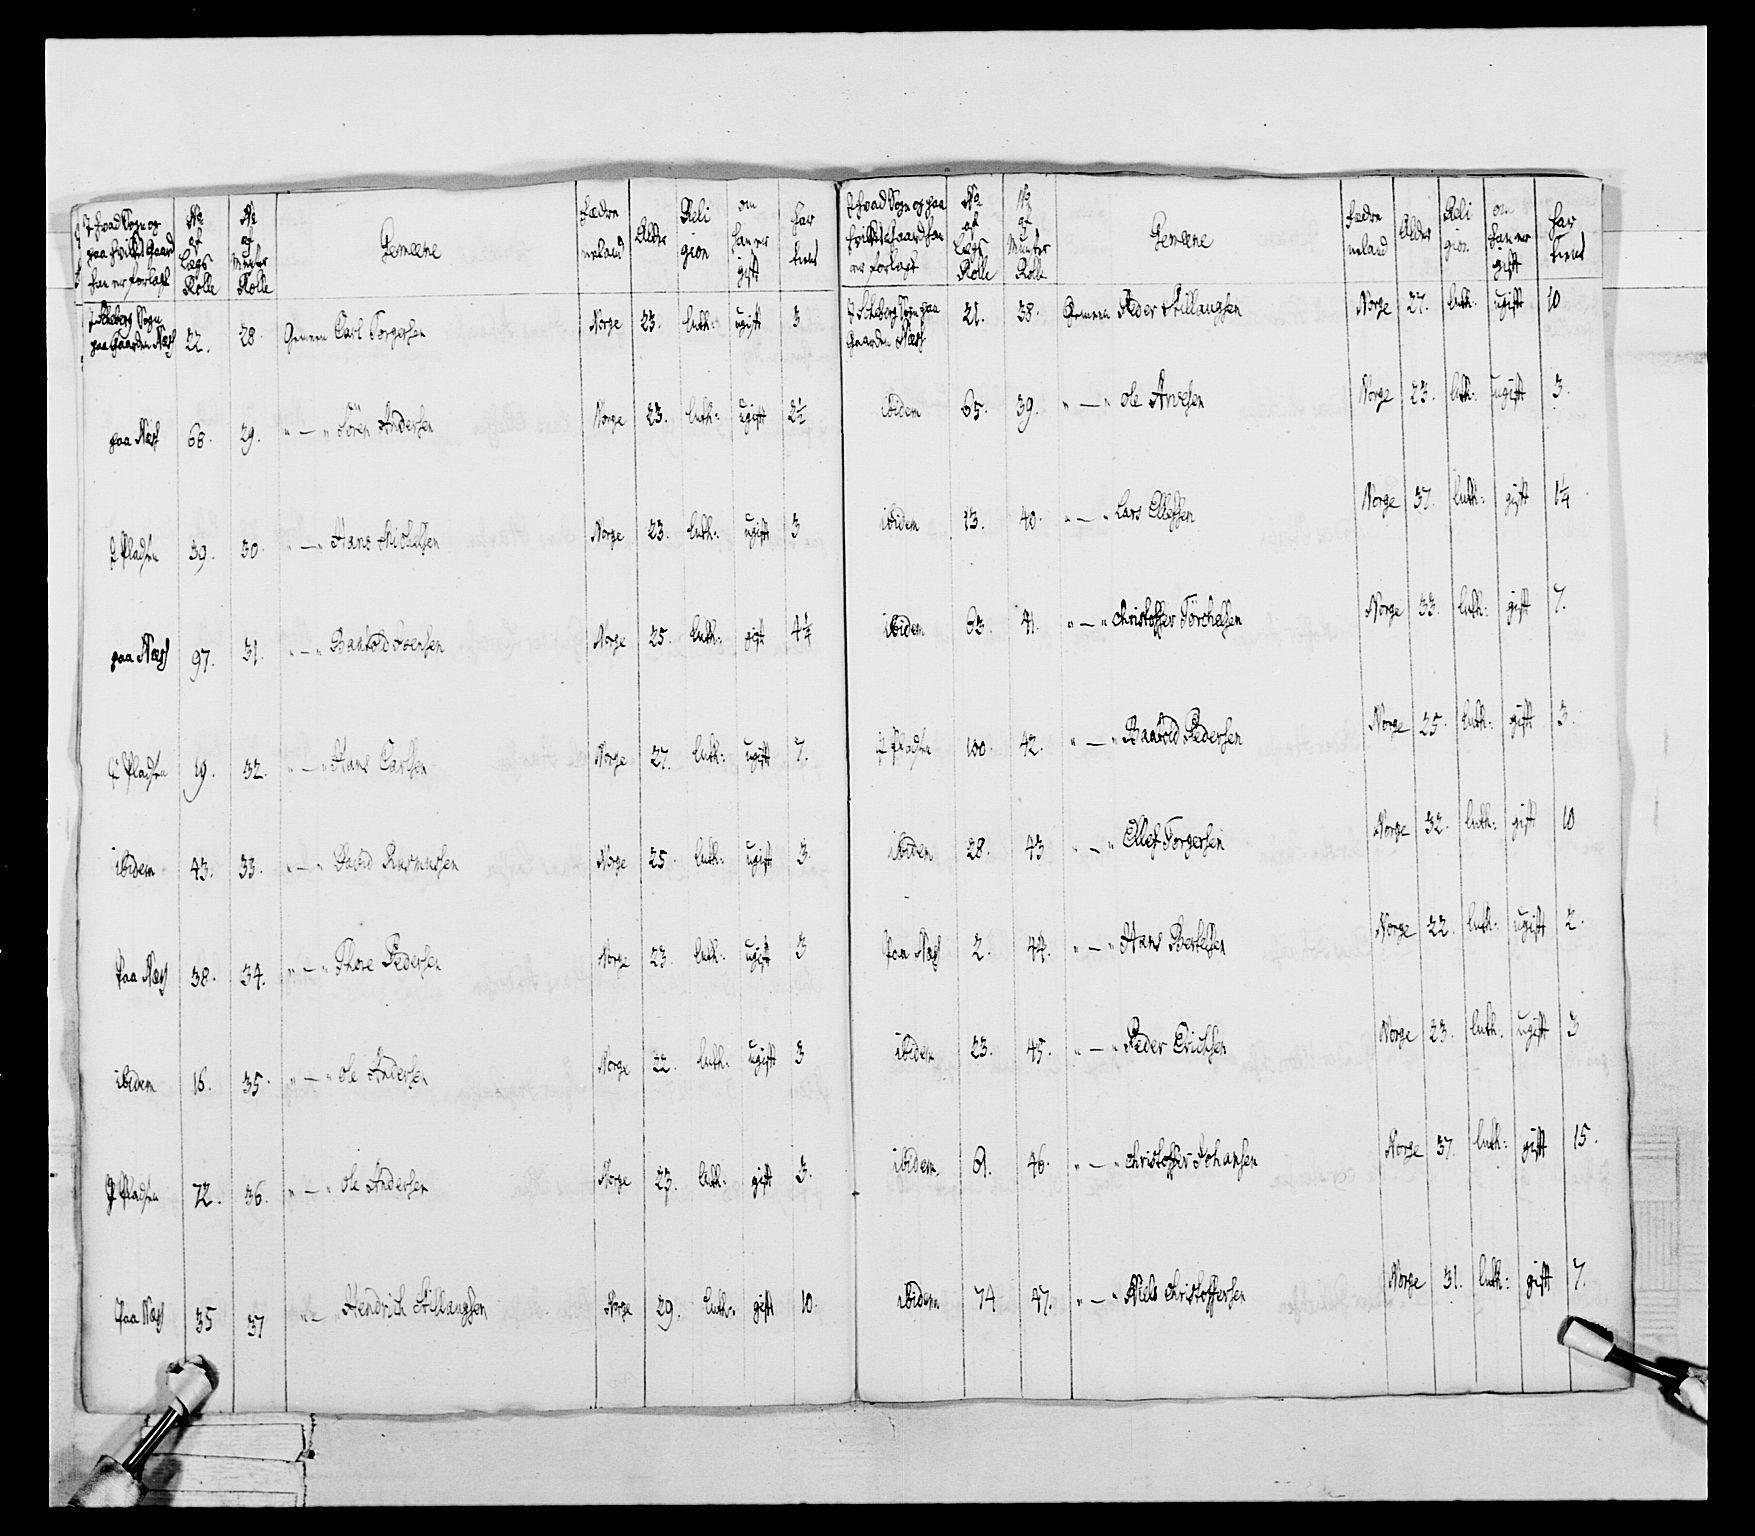 I hvad Sogn og paa hvilket Gaard han er forlagt | No af Lægs Rolle | No af Munster Rolle | Gemeene | Fædre neland | Alder | Reli gion | om han er gift | har tient
I Scheberg Sogn paa Gaarden Næss | 22. | 28 | Gemeen Carl Torgersen | Norge | 23. | luth: | ugift | 3
paa Næss | 68. | 29. | " — " Sören Andersen | Norge | 23. | luth: | ugift | 2½
I Pladsen | 39. | 30. | " — " Hans Michelsen | Norge | 23. | luth: | ugift | 3
paa Næss | 97. | 31. | " — " Baarod Iversen | Norge | 25. | luth: | gift | 4¼
I Pladsen | 19. | 32. | " — " Hans Carlsen | Norge | 27. | luth: | ugift | 7.
ibidem | 43. | 33. | " — " David Rasmussen | Norge | 25. | luth: | ugift | 3.
paa Næss | 38. | 34. | " — " Thore Pedersen | Norge | 23. | luth: | ugift | 3
ibidem | 16. | 35. | " — " Ole Andersen | Norge | 22. | luth: | ugift | 3
I Pladsen | 72. | 36. | " — " Ole Andersen | Norge | 23. | luth: | gift | 3.
paa Næss | 35 | 37 | " — " Hendrich Stillaugsen | Norge | 29. | luth: | gift | 10.
I hvad Sogn og paa hvilket Gaard han er forlagt | No af Lægs Rolle | No af Munster Rolle | Gemeene | Fædre neland | Alder | Reli gion | om han er gift | har tient
I Scheberg Sogn paa Gaarden Næss | 21. | 38. | Gemeen Peder Stillaugsen | Norge | 27. | luth: | ugift | 10
ibidem | 65. | 39. | " — " Ole Arvesen | Norge | 23. | luth: | ugift | 3.
ibidem | 13. | 40. | " — " Lars Ellefsen | Norge | 37. | luth: | gift | 1¼
ibidem | 63. | 41. | " — " Christoffer Törchelsen | Norge | 33. | luth: | gift | 7.
I Pladsen | 100. | 42. | " — " Baarod Pedersen | Norge | 25. | luth: | gift | 3.
ibidem | 28. | 43 | " — " Ellef Torgersen | Norge | 32. | luth: | gift | 10
paa Næss | 2. | 44. | " — " Hans Bertelsen | Norge | 22. | luth: | ugift | 2.
ibidem | 23. | 45. | " — " Peder Erichsen | Norge | 23. | luth. | ugift | 3
ibidem | 9. | 46. | " — " Christoffer Johansen | Norge | 37. | luth: | gift | 15.
ibidem | 74 | 47. | " — " Niels Christoffersen | Norge | 31. | luth: | gift | 7.